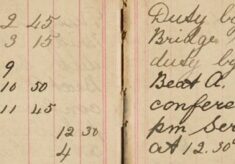 2 45
3 15
9
10 50
11 45
12 30
4
Duty by
Bridge
duty by
Beat A.
confere
pm Ser
at 12.30